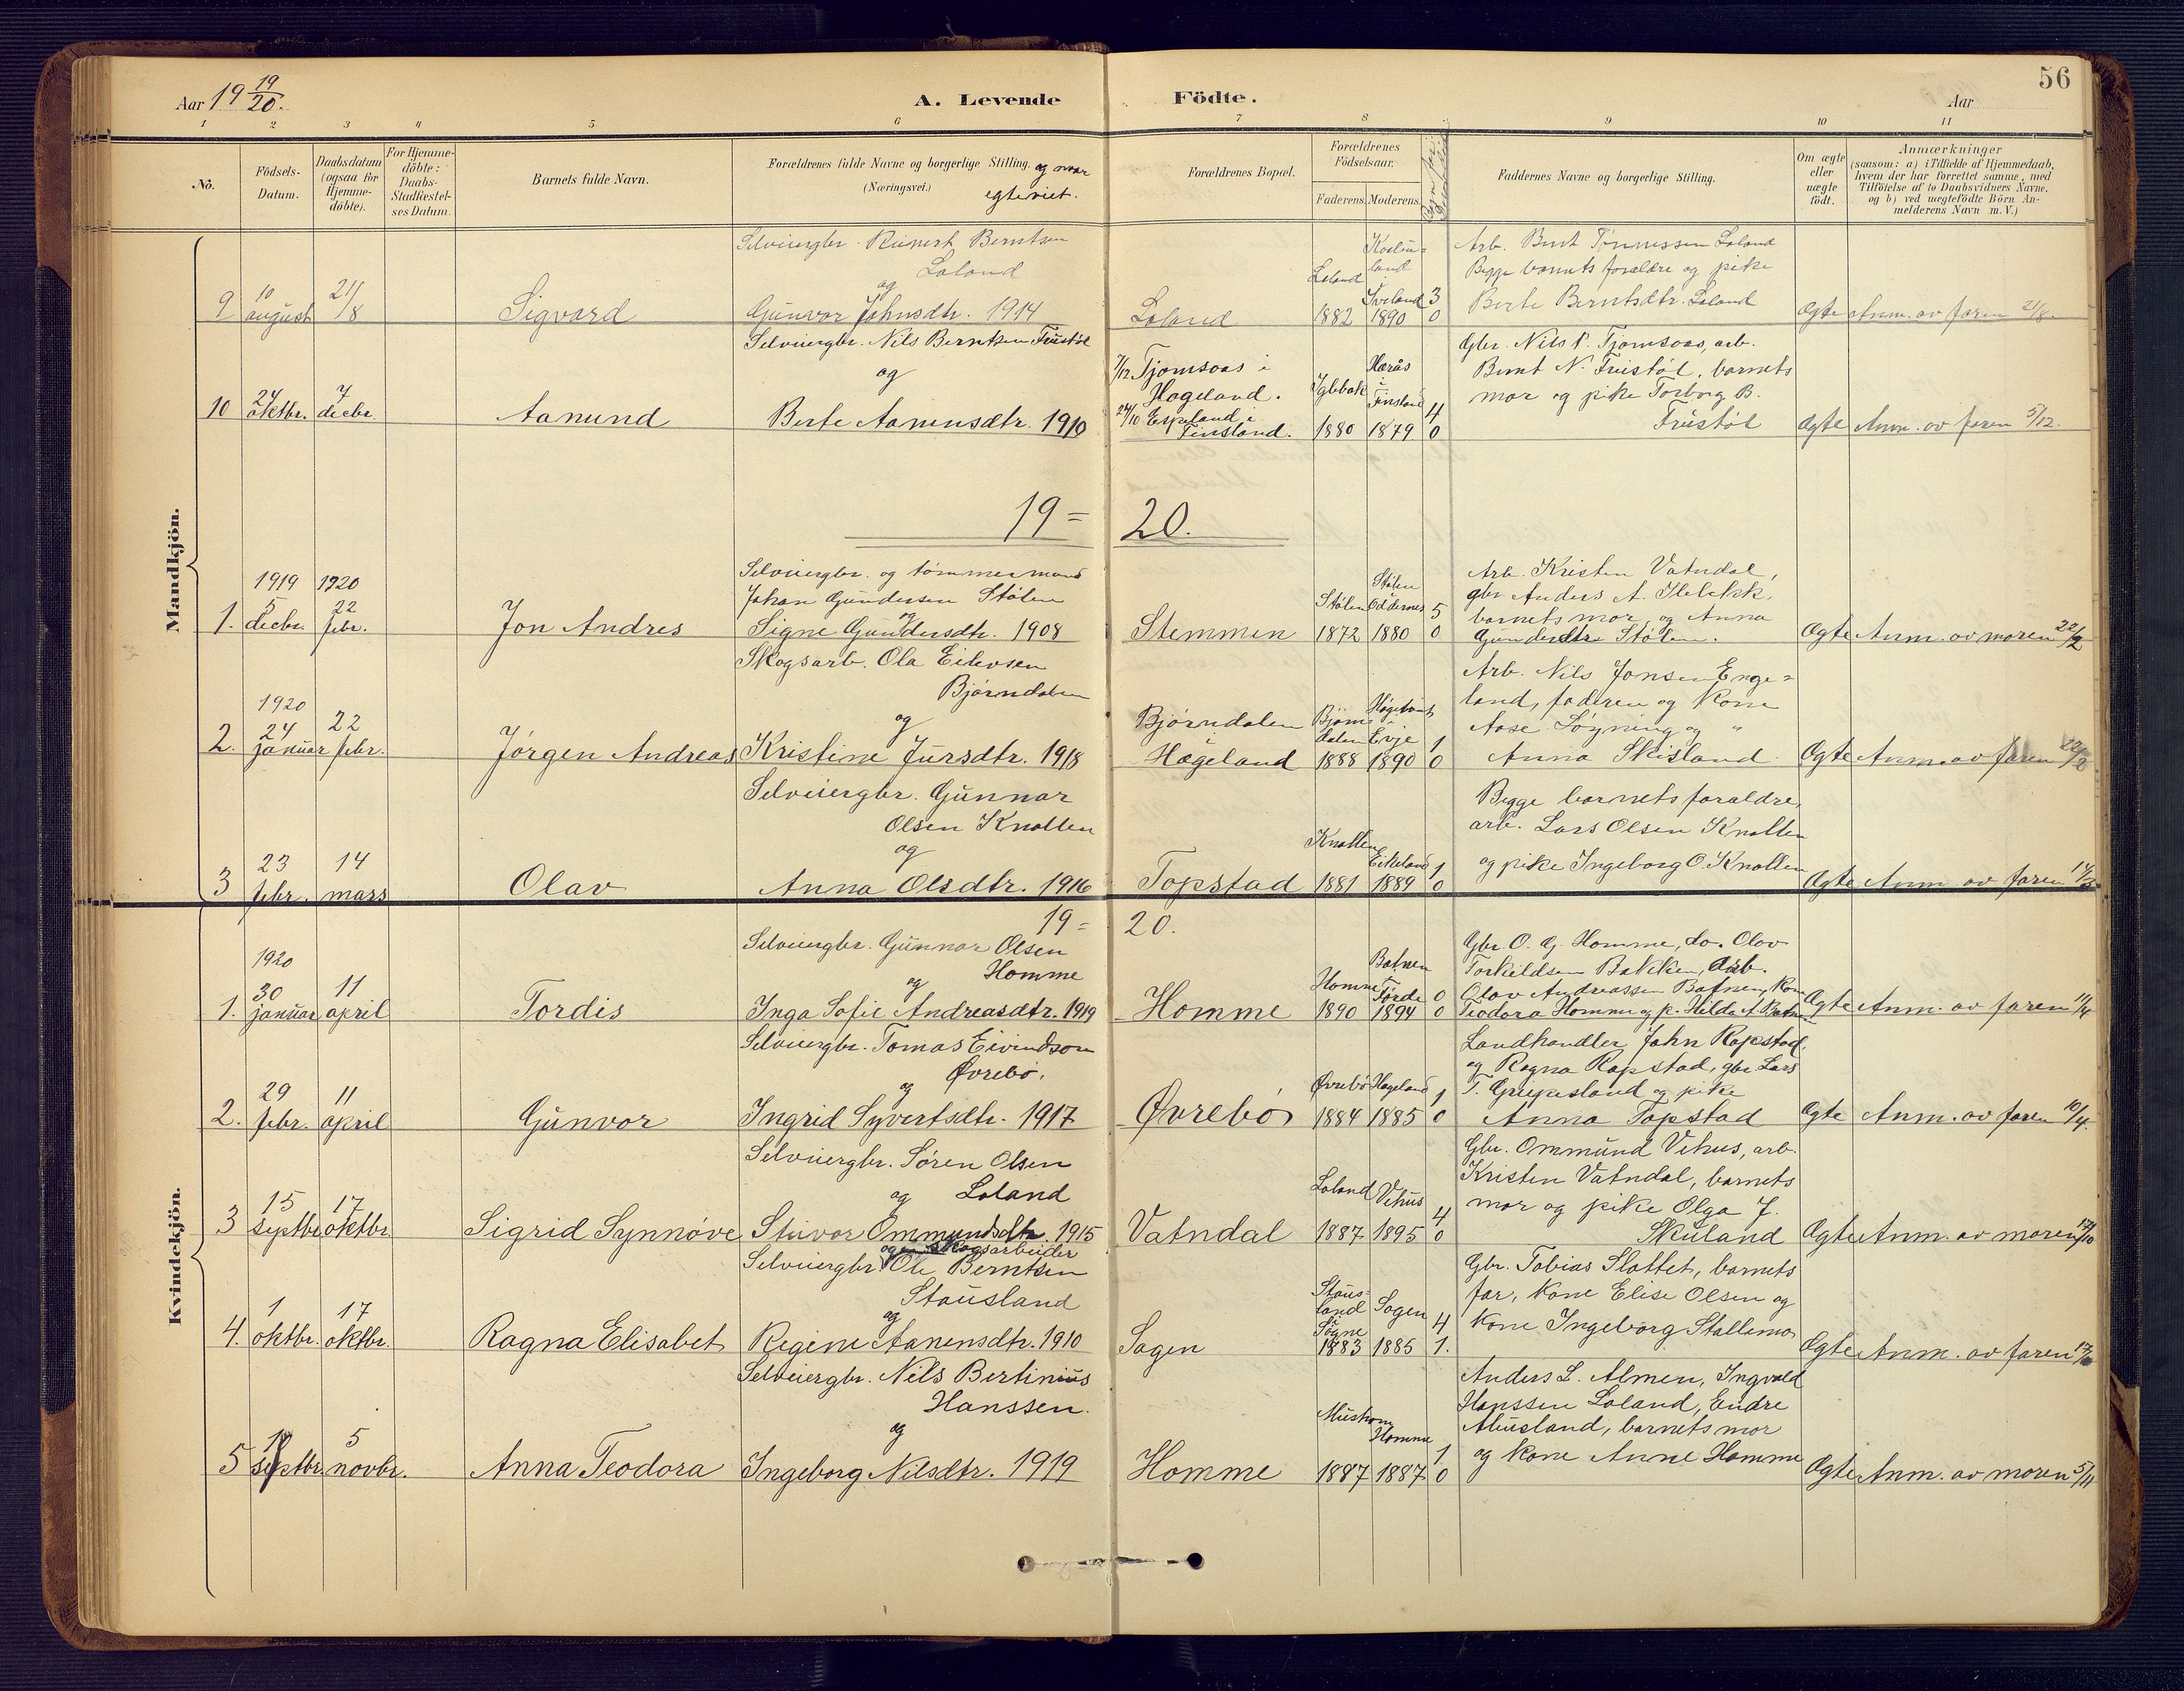 Aar 19 19/20.
A. Levende Födte.
Aar
56
1 2 3 4 5 6 7 8 9 10 11
No.
Födsels-Datum.
Daabsdatum (ogsaa for Hjemme-döbte).
For Hjemme-döbte: Daabs-Stadfæstel-ses Datum.
Barnets fulde Navn.
Forældrenes fulde Navne og borgerlige Stilling. og naar
(Næringsvei.) egteviet.
Forældrenes Bopæl.
Forældrenes Födselsaar.
Faderens. Moderens.
Faddernes Navne og borgerlige Stilling.
Om ægte eller uægte födt.
Anmærkninger
(saasom: a) i Tilfælde af Hjemmedaab, hvem der har forrettet samme, med Tilföielse af to Daabsvidners Navne. og b) ved uægtefödte Börn An-melderens Navn m. V.)
Mandkjön.
9 10 august 21/8 Sigvard
Selveiergbr. Reinert Berntsen
Loland
og
Gunvor Johnsdtr. 1914
Loland
Loland 1882
Iveland 1890
3 0
Arb. Bernt Tønnessen Loland
Begge barnets forældre og pike
Berte Berntsdtr. Loland
Ægte Anm. av faren 21/8.
10 24 oktbr. 7 decbr. Aanund
Selveiergbr. Nils Berntsen Frustøl
og
Berte Aanensdtr. 1910
7/12 Tjomsaas i
Hægeland.
24/10 Espeland i
Finsland.
Iglebæk 1880
Hærås i Finsland 1879
4 0
Gbr. Nils P. Tjomsaas, arb.
Bernt N. Frustøl, barnets
mor og pike Torborg B.
Frustøl
Ægte Anm. av faren 5/12.
19=20.
1. 1919 5 decbr. 1920 22 febr. Jon Andres
Selveiergbr. og tømmermand
Johan Gundersen Stølen
og
Signe Gundersdtr. 1908
Stemmen
Stølen 1872
Stølen Oddernes 1880
5 0
Arb. Kristen Vatndal,
gbr Anders A.
barnets mor, og Anna
Gundersdtr Stølen.
Ægte Anm. av moren 22/2
2. 1920 24 januar 22 febr. Jørgen Andreas
Skogsarb. Ola Eilevsen
Bjørndalen
og
Kristine Jursdtr. 1918
Bjørndalen
Hægeland
Bjørndalen 1888
Evje 1890
1 0
Arb. Nils Jonsen Enge=
land, faderen og Kone
Aase Løyning og "
Anna Skisland
Ægte Anm. av faren 22/2
3 23 febr. 14 mars Olav
Selveiergbr. Gunnar
Olsen Knatten
og
Anna Olsdtr. 1916
Topstad
Knatten 1881
Eikeland 1889
1 0
Begge barnets forældre,
arb. Lars Olsen Knatten
og pike Ingeborg O. Knatten
Ægte Anm av faren 14/3
Kvindekjön.
19=20.
1. 1920 30 januar 11 april Tordis
Selveiergbr. Gunnar Olsen
Homme
og
Inga Sofie Andreasdtr. 1919
Homme
Homme 1890
Batnen Førde 1894
0 0
Gbr. O. G. Homme, do. Olav
Torkildsen Bakken, Arb.
Olav Andreassen Batnen, Kone
Teodora Homme og p. Hilda A. Batnen
Ægte Anm. av faren 11/4
2. 29 febr. 11 april Gunvor
Selveiergbr. Tomas Eivindson
Øvrebø.
og
Ingrid Syvertsdtr. 1917
Øvrebø
Øvrebø 1884
Hægeland 1885
1 0
Landhandler John Rapstad.
og Ragna Rapstad, gbr Lars
T. Greipsland og pike
Anna Topstad
Ægte Anm. av faren 10/4.
3 15 septbr 17 oktbr. Sigrid Synnøve
Selveiergbr. Søren Olsen
og Loland
Stivor Ommundsdtr. 1915
Vatndal
Loland 1887
Vehus 1895
4 0
Gbr. Ommund Vehus, arb.
Kristen Vatndal, barnets
mor og pike Olga J.
Skuland
Ægte Anm. av moren 17/10
4. 1 oktbr. 17 oktbr. Ragna Elisabet
og skogsarbeider
Selveiergbr Ole Berntsen
Stausland
og
Regine Aanensdtr. 1910
Sagen
Stausland i Søgne 1883
Sagen 1885
4 1.
Gbr. Tobias Slottet, barnets
far, Kone Elise Olsen og
Kone Ingeborg Stallemo
Ægte Anm. av faren 17/10
5 septbr 5 novbr. Anna Teodora
Selveiergbr. Nils Bertinius
Hanssen.
og
Ingeborg Nilsdtr. 1919
Homme
1887
Homme 1887
1 0
Anders L. Almen, Ingvald
Hanssen Loland, Endre
Musland, barnets mor
og kone Anne Homme
Ægte Anm. av moren 5/11